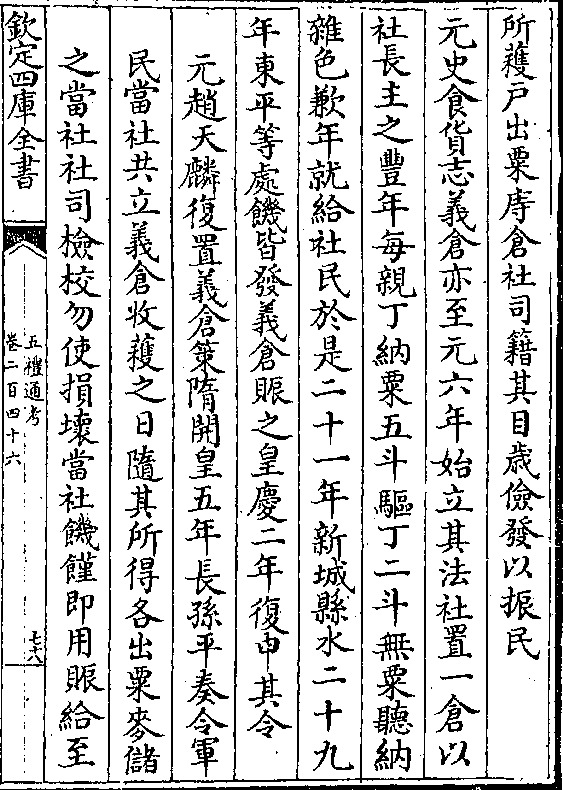 所穫戸出粟庤倉社司籍其目歳儉發以振民
元史食貨志義倉亦至元六年始立其法社置一倉以
社長主之豐年每親丁納粟五斗驅丁二斗無粟聽納
雜色歉年就給社民於是二十一年新城縣水二十九
年東平等處饑皆發義倉賑之皇慶二年復申其令
元趙天麟復置義倉策隋開皇五年長孫平奏令軍
民當社共立義倉收穫之日隨其所得各出粟麥儲
之當社社司檢校勿使損壞當社饑饉即用賑給至
欽定四庫全書
五禮通考
卷二百四十六
七十八